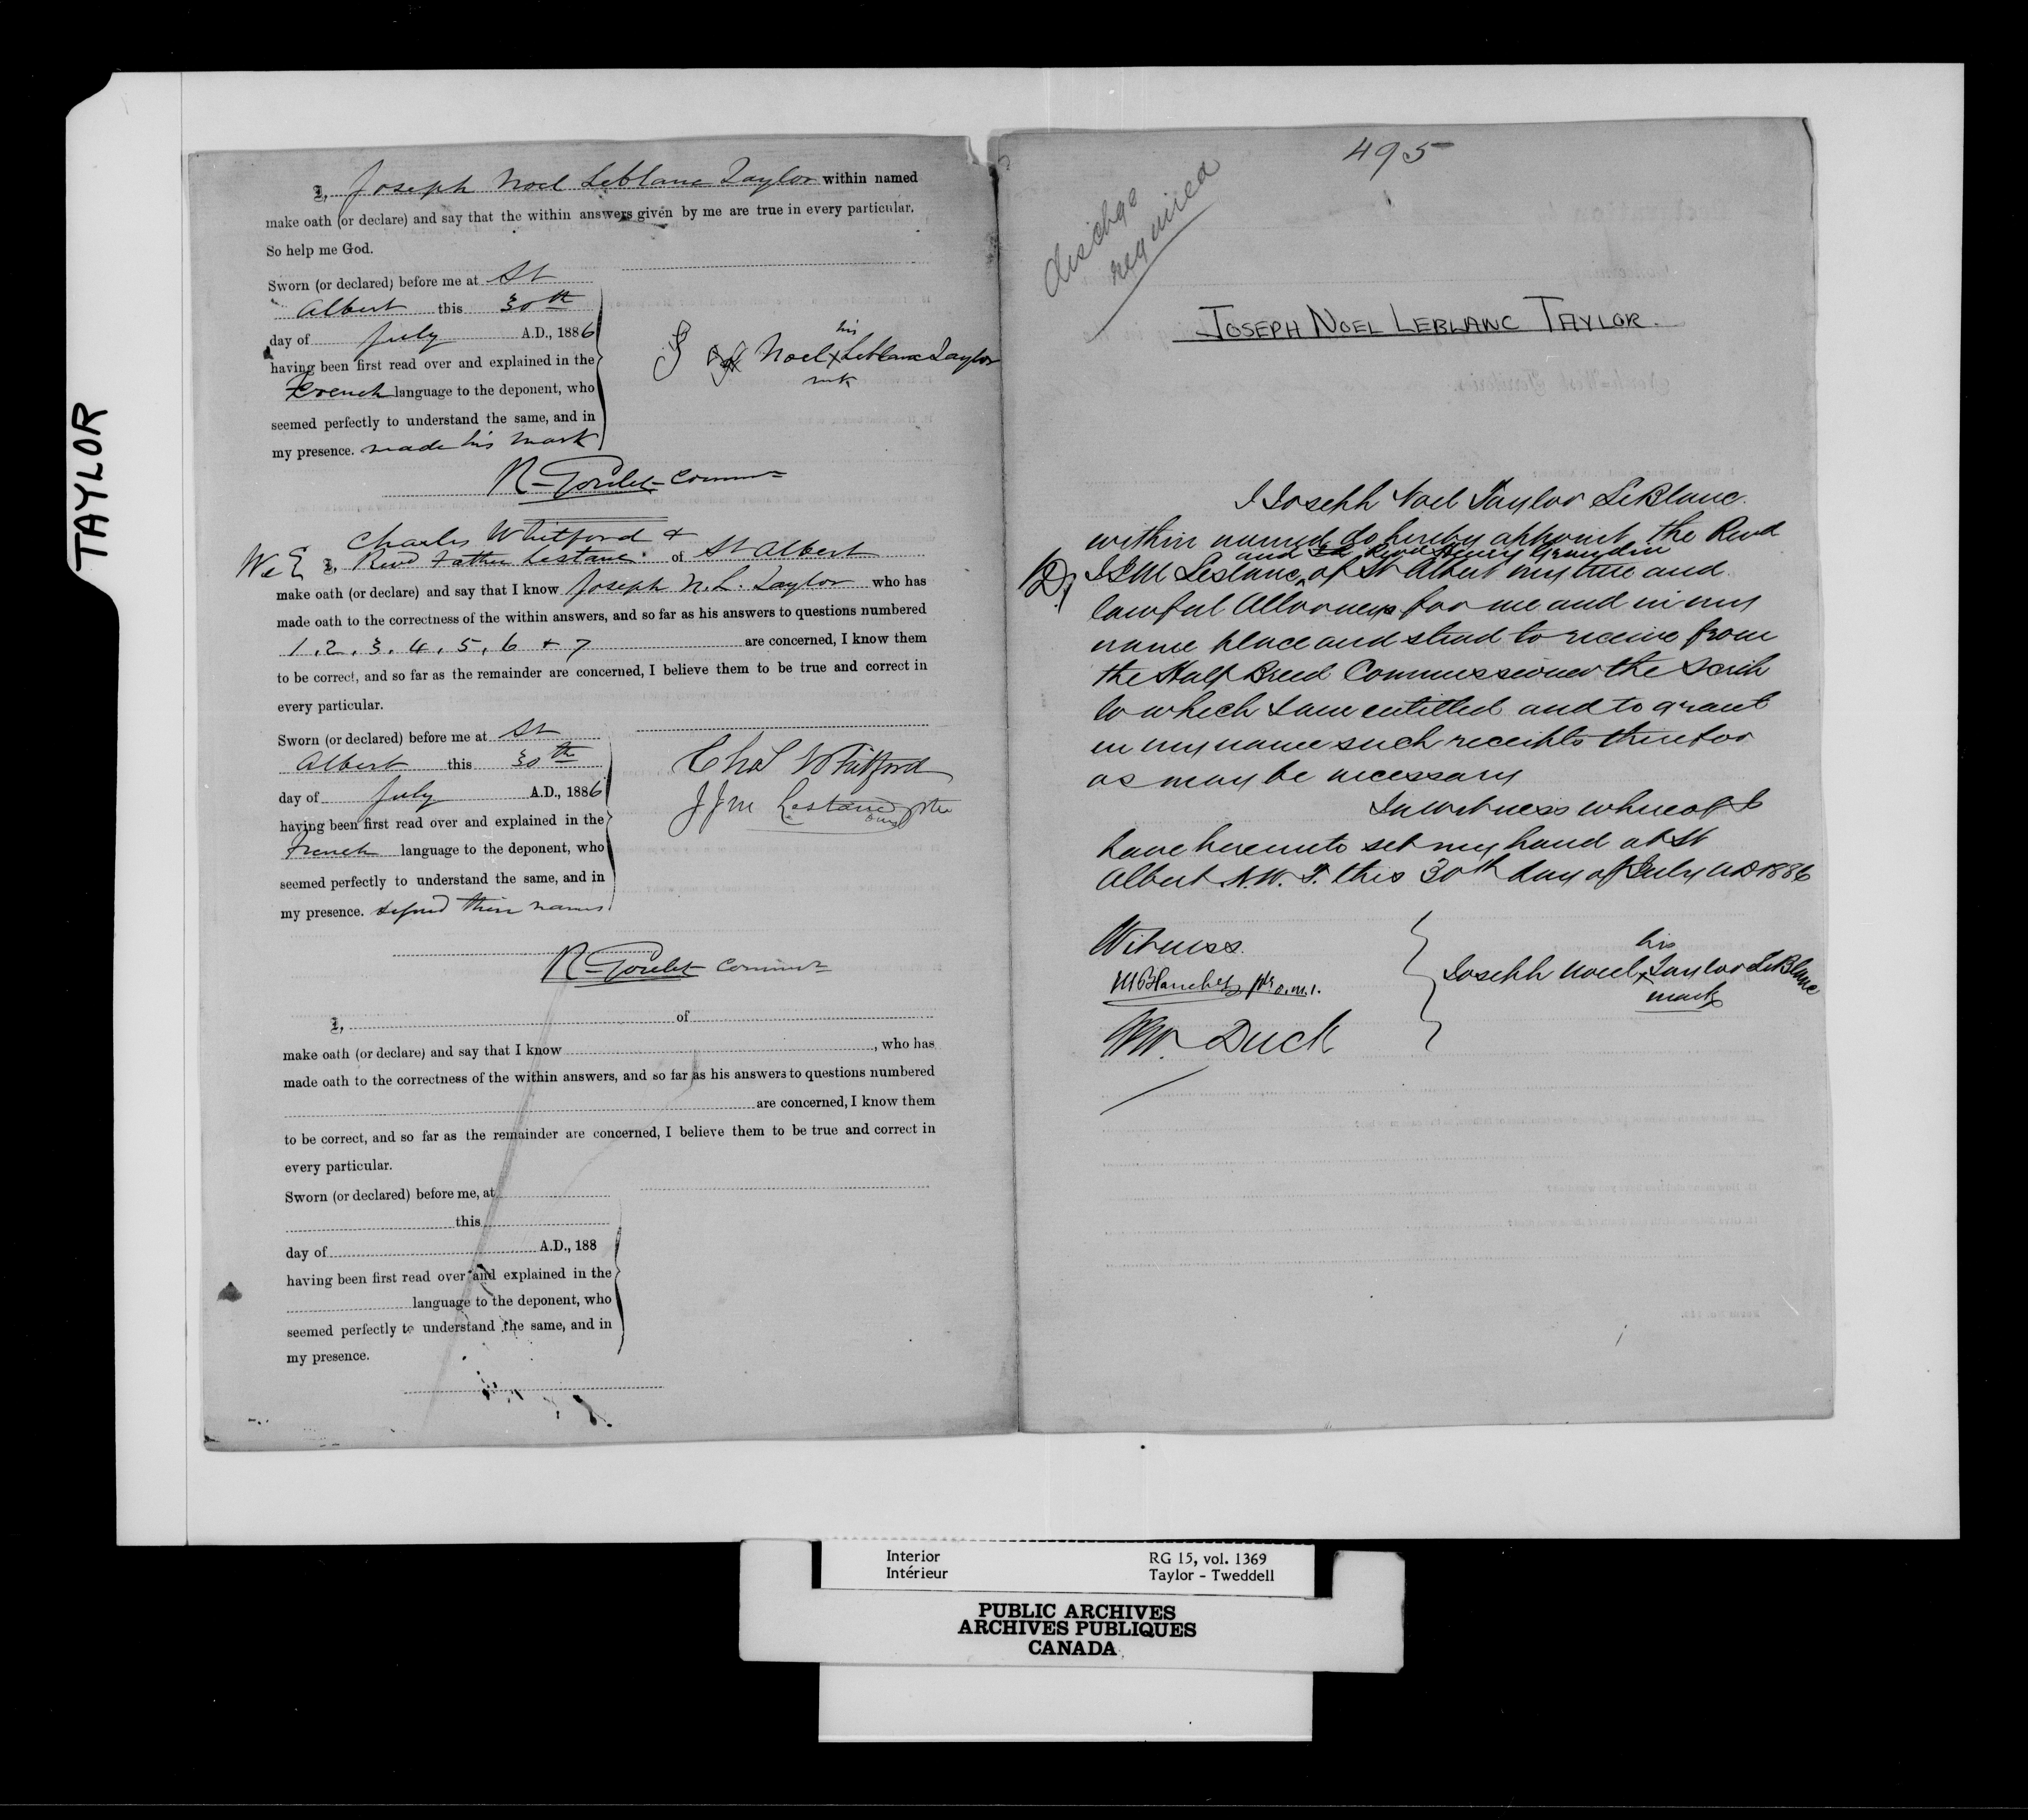 TAYLOR
I, Joseph Noel Leblanc Taylor within named
make oath (or declare) and say that the within answers given by me are true in every particular.
So help me God.
Sworn (or declared) before me at St
Albert this 30th
day of July A.D., 1886
having been first read over and explained in the
French language to the deponent, who
seemed perfectly to understand the same, and in
my presence. made his mark
his
Noel x Leblanc Taylor
mk
R. Goulet Commr
Charles Whitford &
We I, Revd Father Lestanc of St Albert
make oath (or declare) and say that I know Joseph N. L. Taylor who has
made oath to the correctness of the within answers, and so far as his answers to questions numbered
1. 2. 3. 4. 5. 6 + 7 are concerned, I know them
to be correct, and so far as the remainder are concerned, I believe them to be true and correct in
every particular.
Sworn (or declared) before me at St
Albert this 30th
day of July A.D., 1886
having been first read over and explained in the
French language to the deponent, who
seemed perfectly to understand the same, and in
my presence. signed their names
Chas Whitford
J J M Lestanc ptre
omi
R. Goulet Commr
I, of
make oath (or declare) and say that I know , who has
made oath to the correctness of the within answers, and so far as his answers to questions numbered
are concerned, I know them
to be correct, and so far as the remainder are concerned, I believe them to be true and correct in
every particular.
Sworn (or declared) before me, at
this
day of A.D., 188
having been first read over and explained in the
language to the deponent, who
seemed perfectly to understand the same, and in
my presence.
495
dischge
required
JOSEPH NOEL LEBLANC TAYLOR.
I Joseph Noel Taylor LeBlanc
within named do hereby appoint the Revd
and Revd Henry Grandin
J J M Lestanc of St Albert my true and
lawful Attorneys for me and in my
name place and stead to receive from
the Half Breed Commissioner the Scrip
to which I am entitled and to grant
in my name such receipts therefor
as may be necessary
In witness whereof I
have hereunto set my hand at St
Albert N.W.T. this 30th day of July AD 1886
Witness
M Blanchet ptr o.m.i.
Duck
his
Joseph Noel x Taylor LeBlanc
mark
Interior
Intérieur
RG 15, vol. 1369
Taylor - Tweddell
PUBLIC ARCHIVES
ARCHIVES PUBLIQUES
CANADA